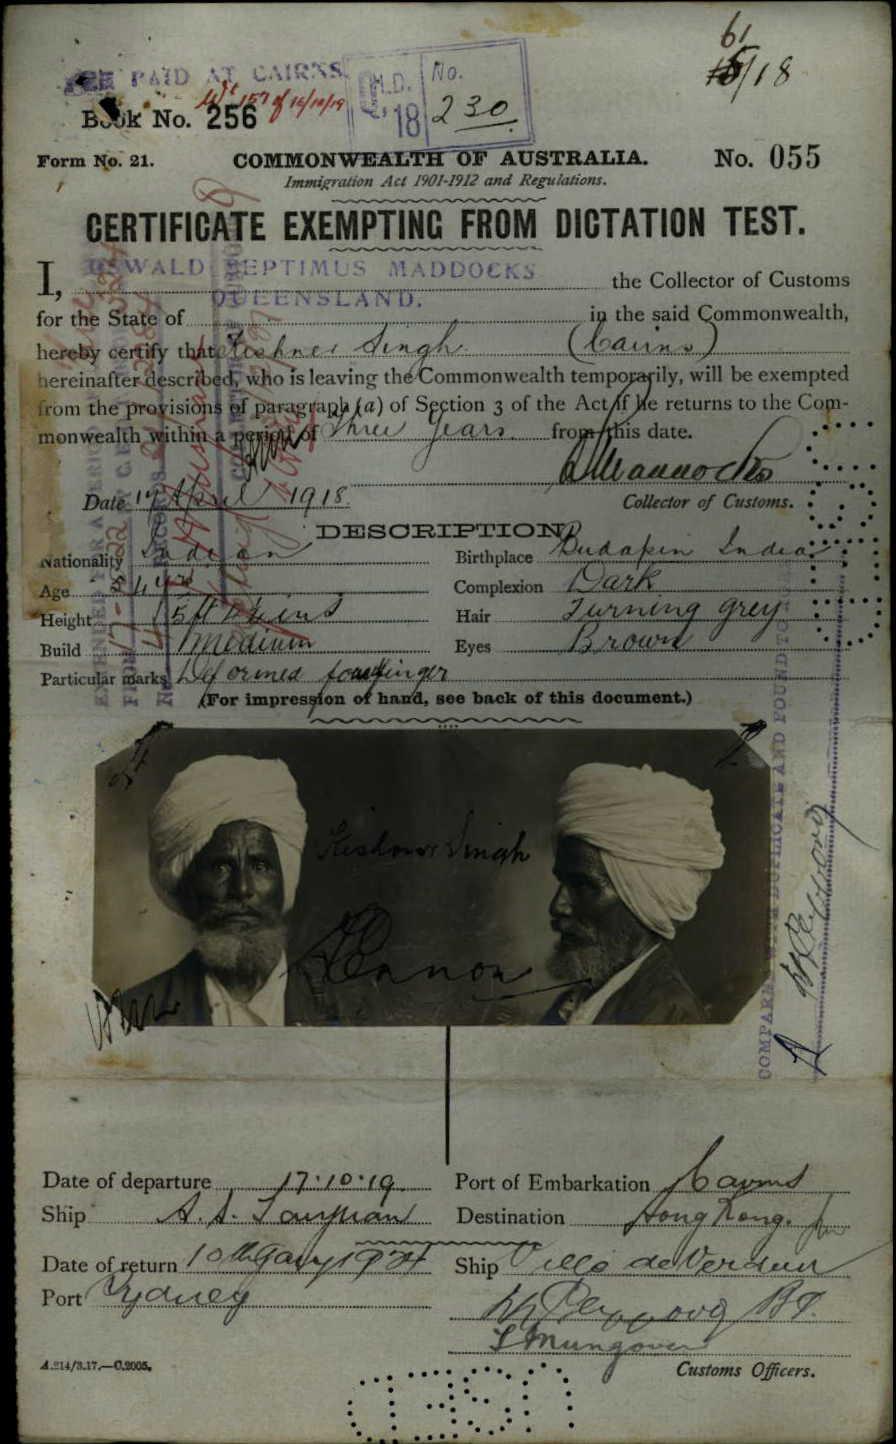 61
15/18
FEE PAID AT CAIRNS.
QLD. 18
No. 230
Book No. 256
Form No. 21.
COMMONWEALTH OF AUSTRALIA.
No. 055
Immigration Act 1901-1912 and Regulations.
CERTIFICATE EXEMPTING FROM DICTATION TEST.
I, OSWALD SEPTIMUS MADDOCKS the Collector of Customs
for the State of QUEENSLAND. in the said Commonwealth,
hereby certify that Kishnee Singh (Cairns)
hereinafter described, who is leaving the Commonwealth temporarily, will be exempted
from the provisions of paragraph (a) of Section 3 of the Act if he returns to the Com-
monwealth within a period of Three Years from this date.
Date 17 April 1918
Collector of Customs.
DESCRIPTION
Nationality Indian
Birthplace India
Age 54 yrs
Complexion Dark
Height 5ft ins
Hair Turning grey
Build Medium
Eyes Brown
Particular marks Deformed forefinger
(For impression of hand, see back of this document.)
Singh
COMPARED WITH DUPLICATE AND FOUND TO
Date of departure 17.10.19
Port of Embarkation Cairns
Ship
Destination Hong Kong.
Date of return 10th Jany
Ship Ville de Verdun
Port Sydney
A.214/3.17.—C.2005.
Customs Officers.